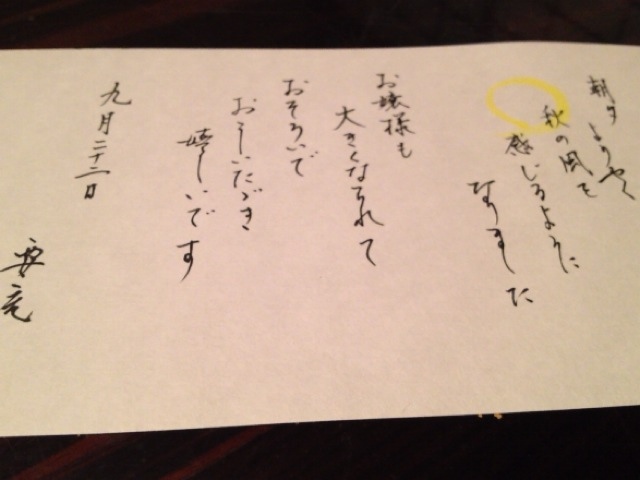 朝夕ようやく
秋の風を
感じるように
なりました
お嬢様も
大きくなられて
おそろいで
おこしいただき
嬉しいです
九月二十二日